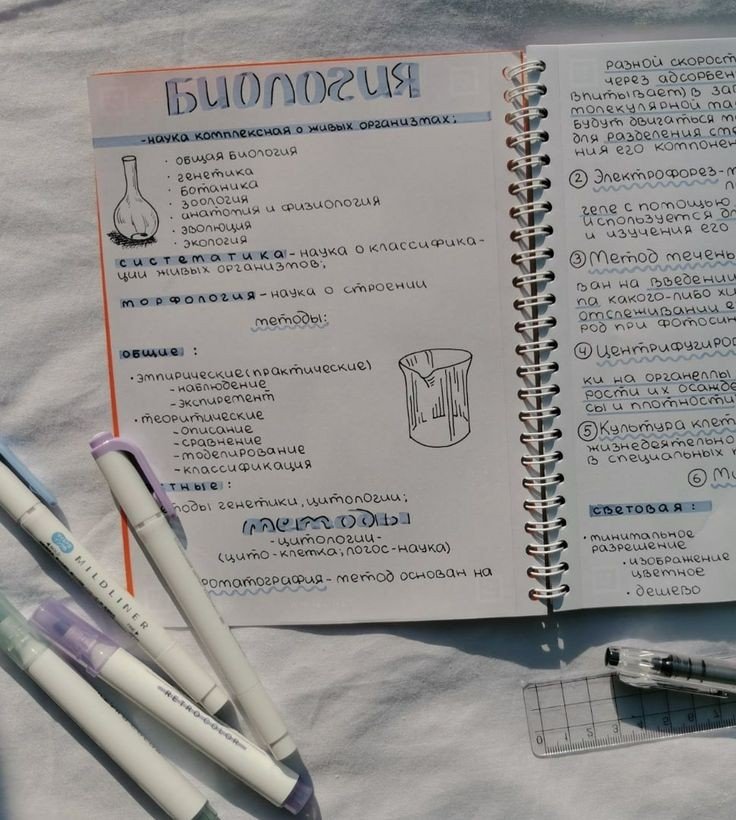 БИОЛОГИЯ
-наука комплексная о живых организмах;
· общая биология
· генетика
· ботаника
· зоология
· анатомия и физиология
· эволюция
· экология
систематика - наука о классифика-
ции живых организмов;
морфология - наука о строении
методы:
общие :
· эмпирические(практические)
- наблюдение
- экспиремент
· теоритические
- описание
- сравнение
- моделирование
- классификация
тные :
тоды генетики, цитологии;
методы
- цитологии-
(цито-клетка; логос-наука)
роматография - метод основан на
разной скорост
через адсорбен
впитывает) в за
молекулярной ма
будут двигаться
для разделения сме
ния его компонен
② Электрофорез-
геле с помощью
используется дл
и изучения его
③ Метод мечены
ван на введении
па какого-либо хи
отслеживании е
род при фотосин
④ Центрифугиров
ки на органеллы
рости их осажде
сы и плотности
⑤ Культура клет
жизнедеятельно
в специальных
⑥ Ми
световая :
· минимальное
разрешение
· изображение
цветное
· дешево
MILDLINER
RETRO COLOR
0 1 2 3